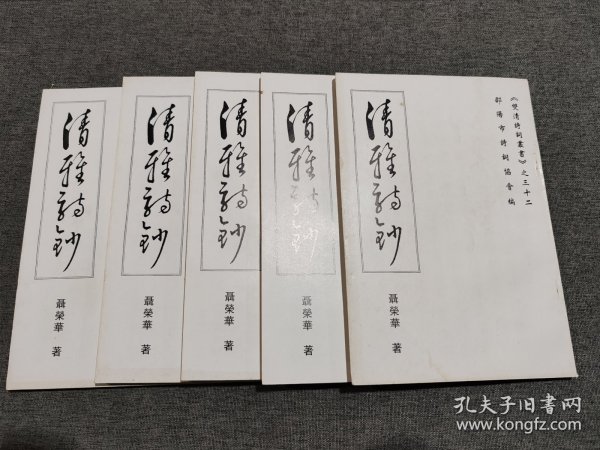 《雙清詩詞叢書》之三十二
邵陽市詩詞協會編
清雅詩鈔
聶榮華 著
清雅詩鈔
聶榮華 著
清雅詩鈔
聶榮華 著
清雅詩鈔
聶榮華 著
清雅詩鈔
聶榮華 著
孔夫子旧书网
www.kongfz.com